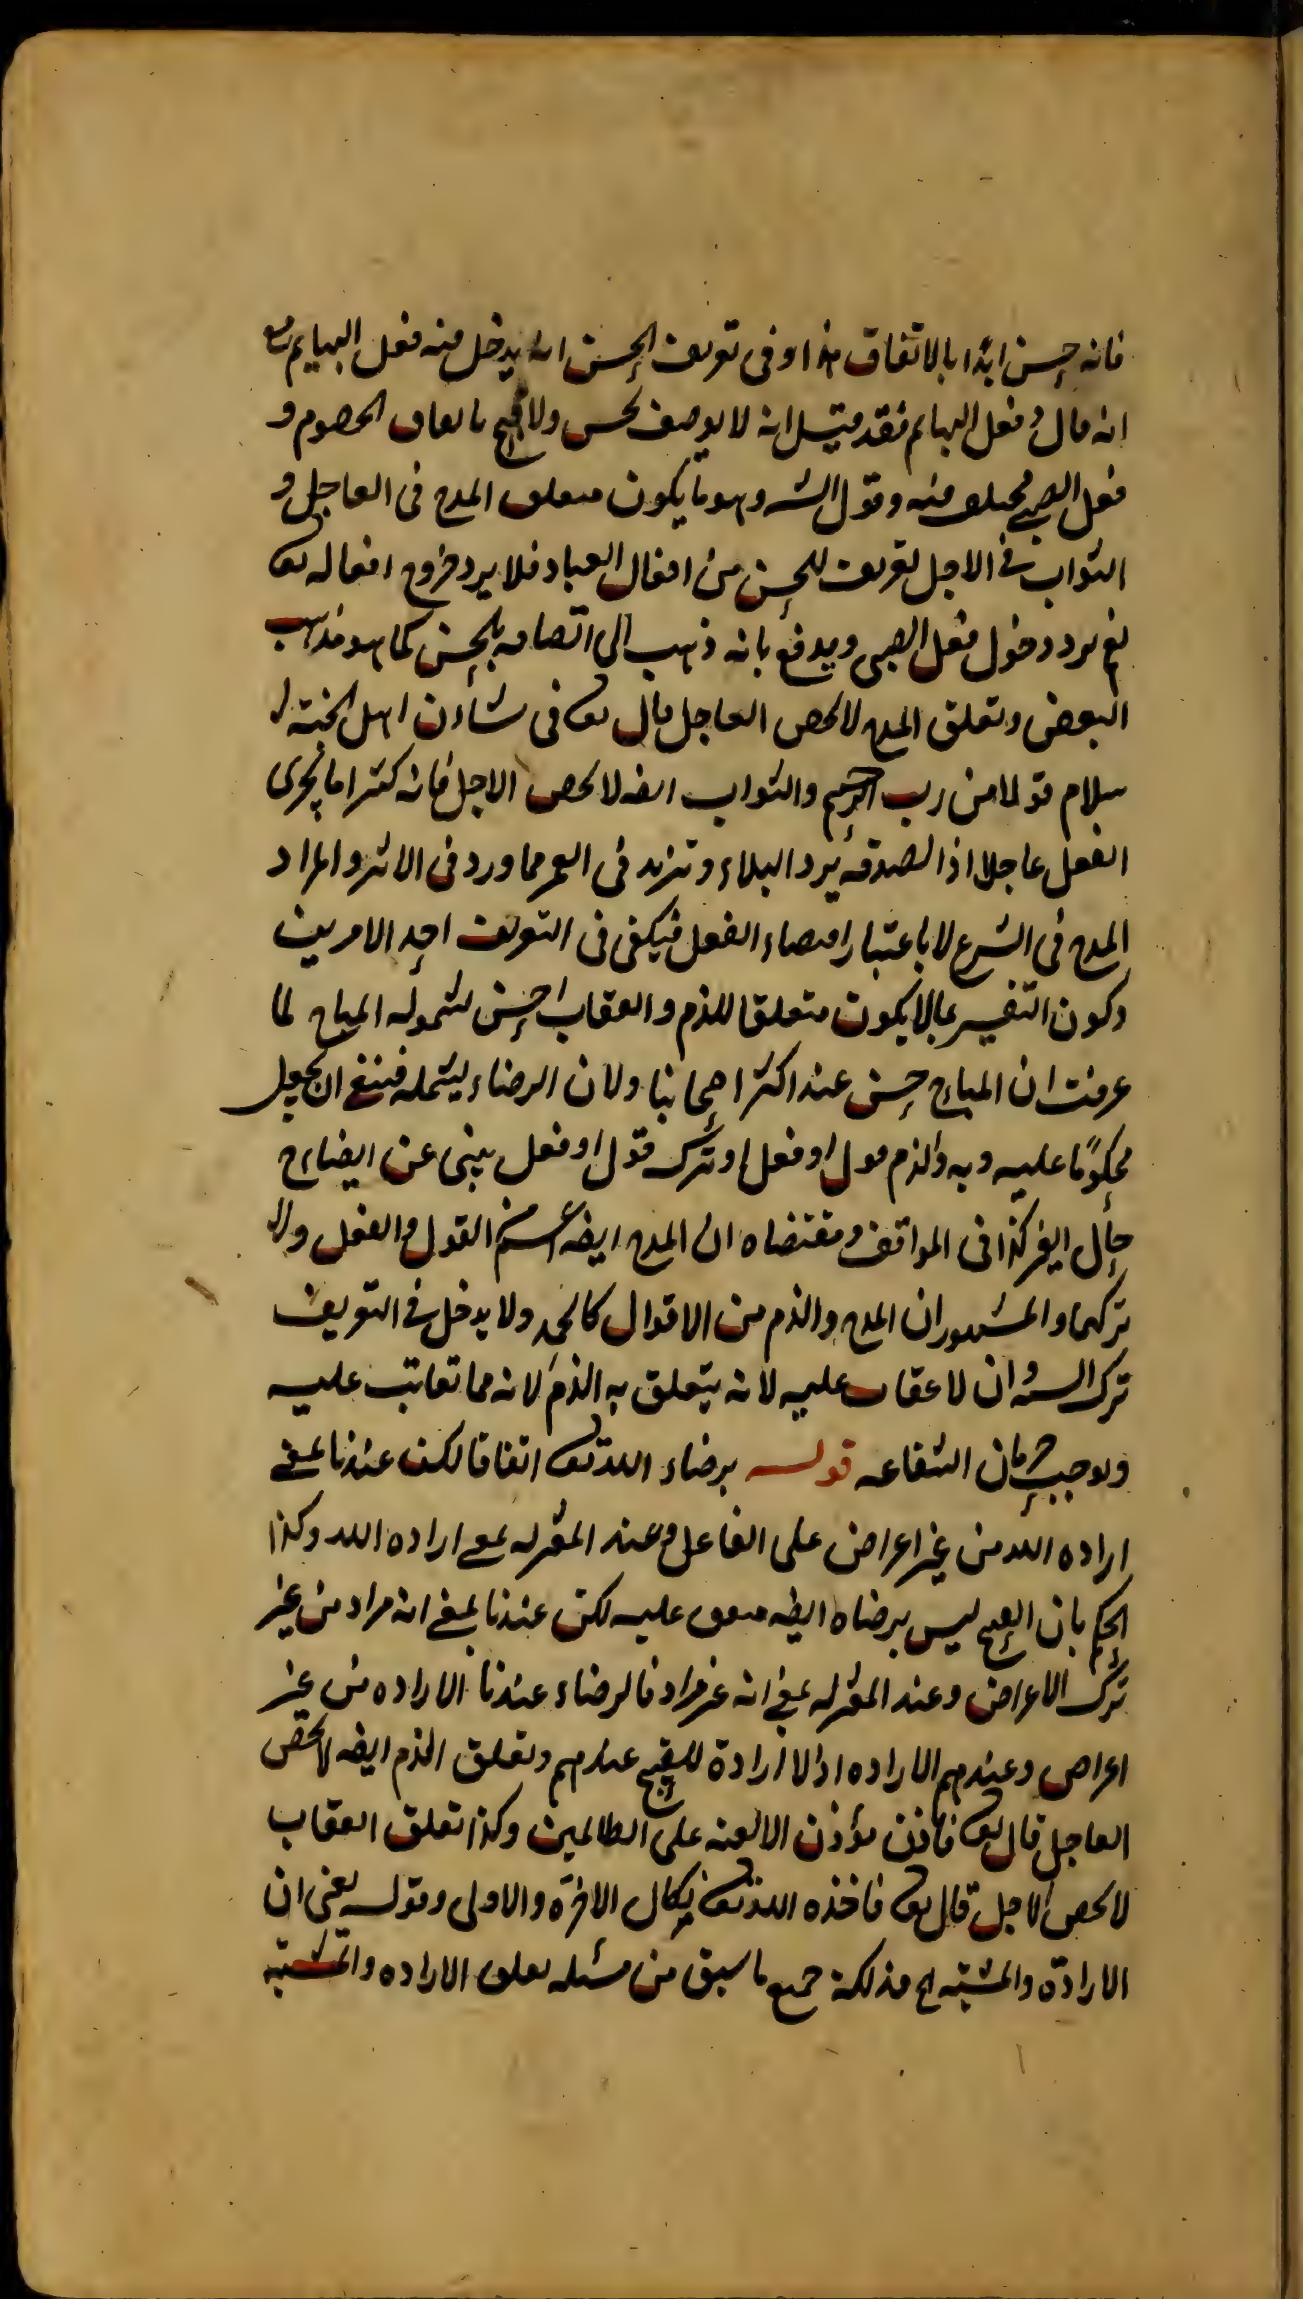 فانه حسن ابدا بالاتفاق هذا وفى تعريف الحسن انه يدخل فيه فعل البهايم مع
انه قال و فعل البهايم فقد قيل انه لا يوصف بحسن ولا قبح باتفاق الخصوم و
فعل الصبى مختلف فيه وقول الشه وهو ما يكون متعلق المدح فى العاجل و
الثواب فى الاجل تعريف للحسن من افعال العباد فلا يرد خروج افعاله تعا
نعم يرد دخول فعل الصبى ويدفع بانه ذهب الى اتصافه بالحسن كما هو مذهب
البعض وتعلق المدح لا يخص العاجل قال تعا فى شان اهل الجنة
سلام قولا من رب الرحيم والثواب ايضه لا يخص الاجل فانه كثيرا ما يجرى
الفعل عاجلا اذ الصدقة يرد البلاء وتزيد فى العمر مما ورد فى الاثر والمراد
المدح فى الشرع لا باعتبار اقتضاء الفعل فيكفى فى التعريف احد الامرين
وكون التفسير بما لا يكون متعلقا للذم والعقاب احسن لشموله المباح لما
عرفت ان المباح حسن عند اكثر اصحابنا ولان الرضاء يشمله فينبغى ان يجعل
محكوما عليه وبه والذم قول او فعل او ترك قول او فعل ينبى عن ايضاح
حال الغير كذا فى المواقف ومقتضاه ان المدح ايضه اعم من القول والفعل ولا
تركهما والمشهور ان المدح والذم من الاقوال كالحمد ولا يدخل فى التعريف
ترك السنة وان لا عقاب عليه لانه يتعلق به الذم لانه مما تعاتب عليه
ويوجب حرمان الشفاعه قوله برضاء الله تعا اتفاقا لكن عندنا بمعنى
اراده الله من غير اعراض على الفاعل وعند المعتزله بمعنى اراده الله وكذا
الحكم بان القبيح ليس برضاه ايضه متفق عليه لكن عندنا بمعنى انه مراد من غير
ترك الاعراض وعند المعتزله بمعنى انه غير مراد فالرضاء عندنا الاراده من غير
اعراض وعندهم الاراده اذ لا ارادة للقبيح عندهم وتعلق الذم ايضه لا يخص
العاجل قال تعا فاذن مؤذن الا لعنه على الظالمين وكذا تعلق العقاب
لا يخص الاجل قال تعا فاخذه الله تعا نكال الاخرة والاولى وقوله يعنى ان
الارادة والمشيئة الخ فذلكة جميع ما سبق من مسئله تعلق الاراده والمشيئة